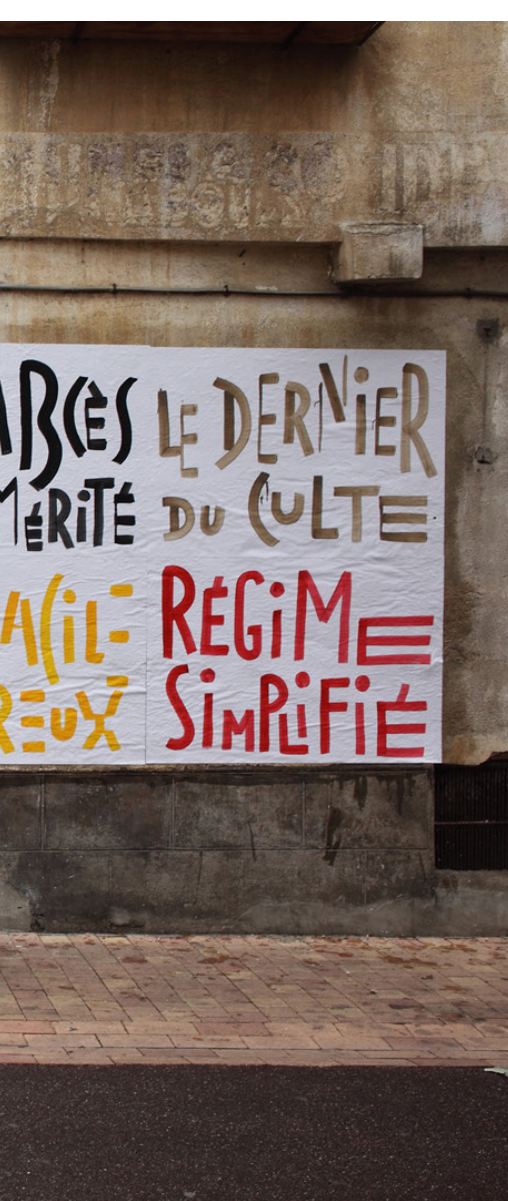 ABCÈS
MÉRITÉ
LE DERNIER
DU CULTE
ACILE
REUX
RÉGIME
SIMPLIFIÉ